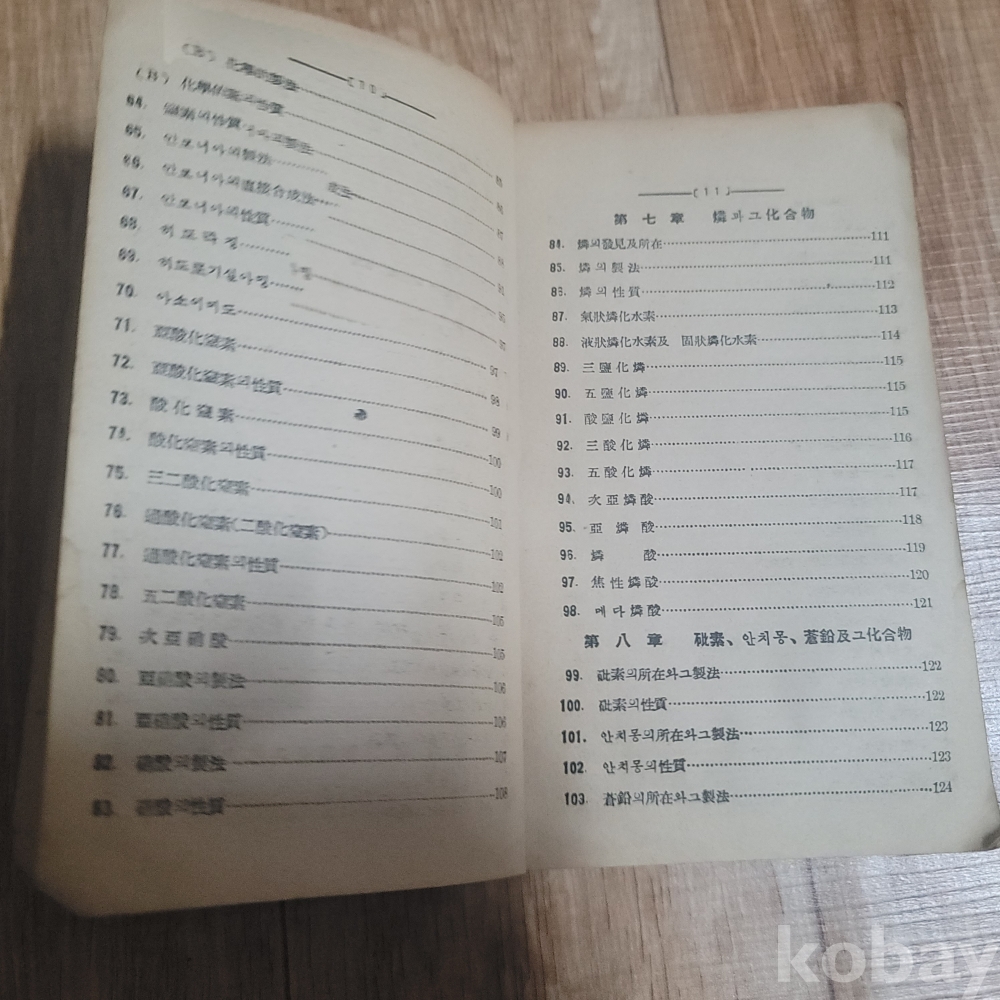 (10)
64. 窒素의性質
65. 안모니아의製法
66. 안모니아의直接合成法
67. 안모니아의性質
68.
69.
70.
71. 亞酸化窒素 97
72. 亞酸化窒素의性質 98
73. 酸化窒素 99
74. 酸化窒素의性質 100
75. 三二酸化窒素 100
76. 過酸化窒素(二酸化窒素) 101
77. 過酸化窒素의性質 102
78. 五二酸化窒素
79. 次亞硝酸 105
80. 亞硝酸의製法
81. 亞硝酸의性質 106
82. 硝酸의製法 107
83. 硝酸의性質 108
(11)
第七章 燐과그化合物
84. 燐의發見及所在 111
85. 燐의製法 111
86. 燐의性質 112
87. 氣狀燐化水素 113
88. 液狀燐化水素及 固狀燐化水素 114
89. 三鹽化燐 115
90. 五鹽化燐 115
91. 酸鹽化燐 115
92. 三酸化燐 116
93. 五酸化燐 117
94. 次亞燐酸 117
95. 亞燐酸 118
96. 燐酸 119
97. 焦性燐酸 120
98. 메다燐酸 121
第八章 砒素、안치몽、蒼鉛及그化合物
99. 砒素의所在와그製法 122
100. 砒素의性質 122
101. 안치몽의所在와그製法 123
102. 안치몽의性質 123
103. 蒼鉛의所在와그製法 124
kobay